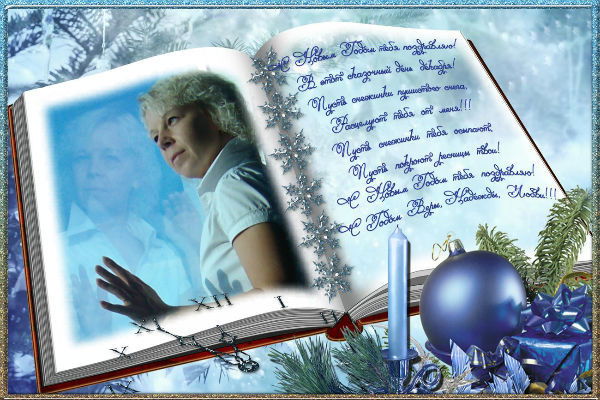 С Новым Годом тебя поздравляю!
В этот сказочный день декабря!
Пусть снежинки пушистого снега,
Расцелуют тебя от меня!!!
Пусть снежинки тебя осыпают,
Пусть покроют ресницы твои!
С Новым Годом тебя поздравляю!
С Годом Веры, Надежды, Любви!!!
X
XI
XII
I
II